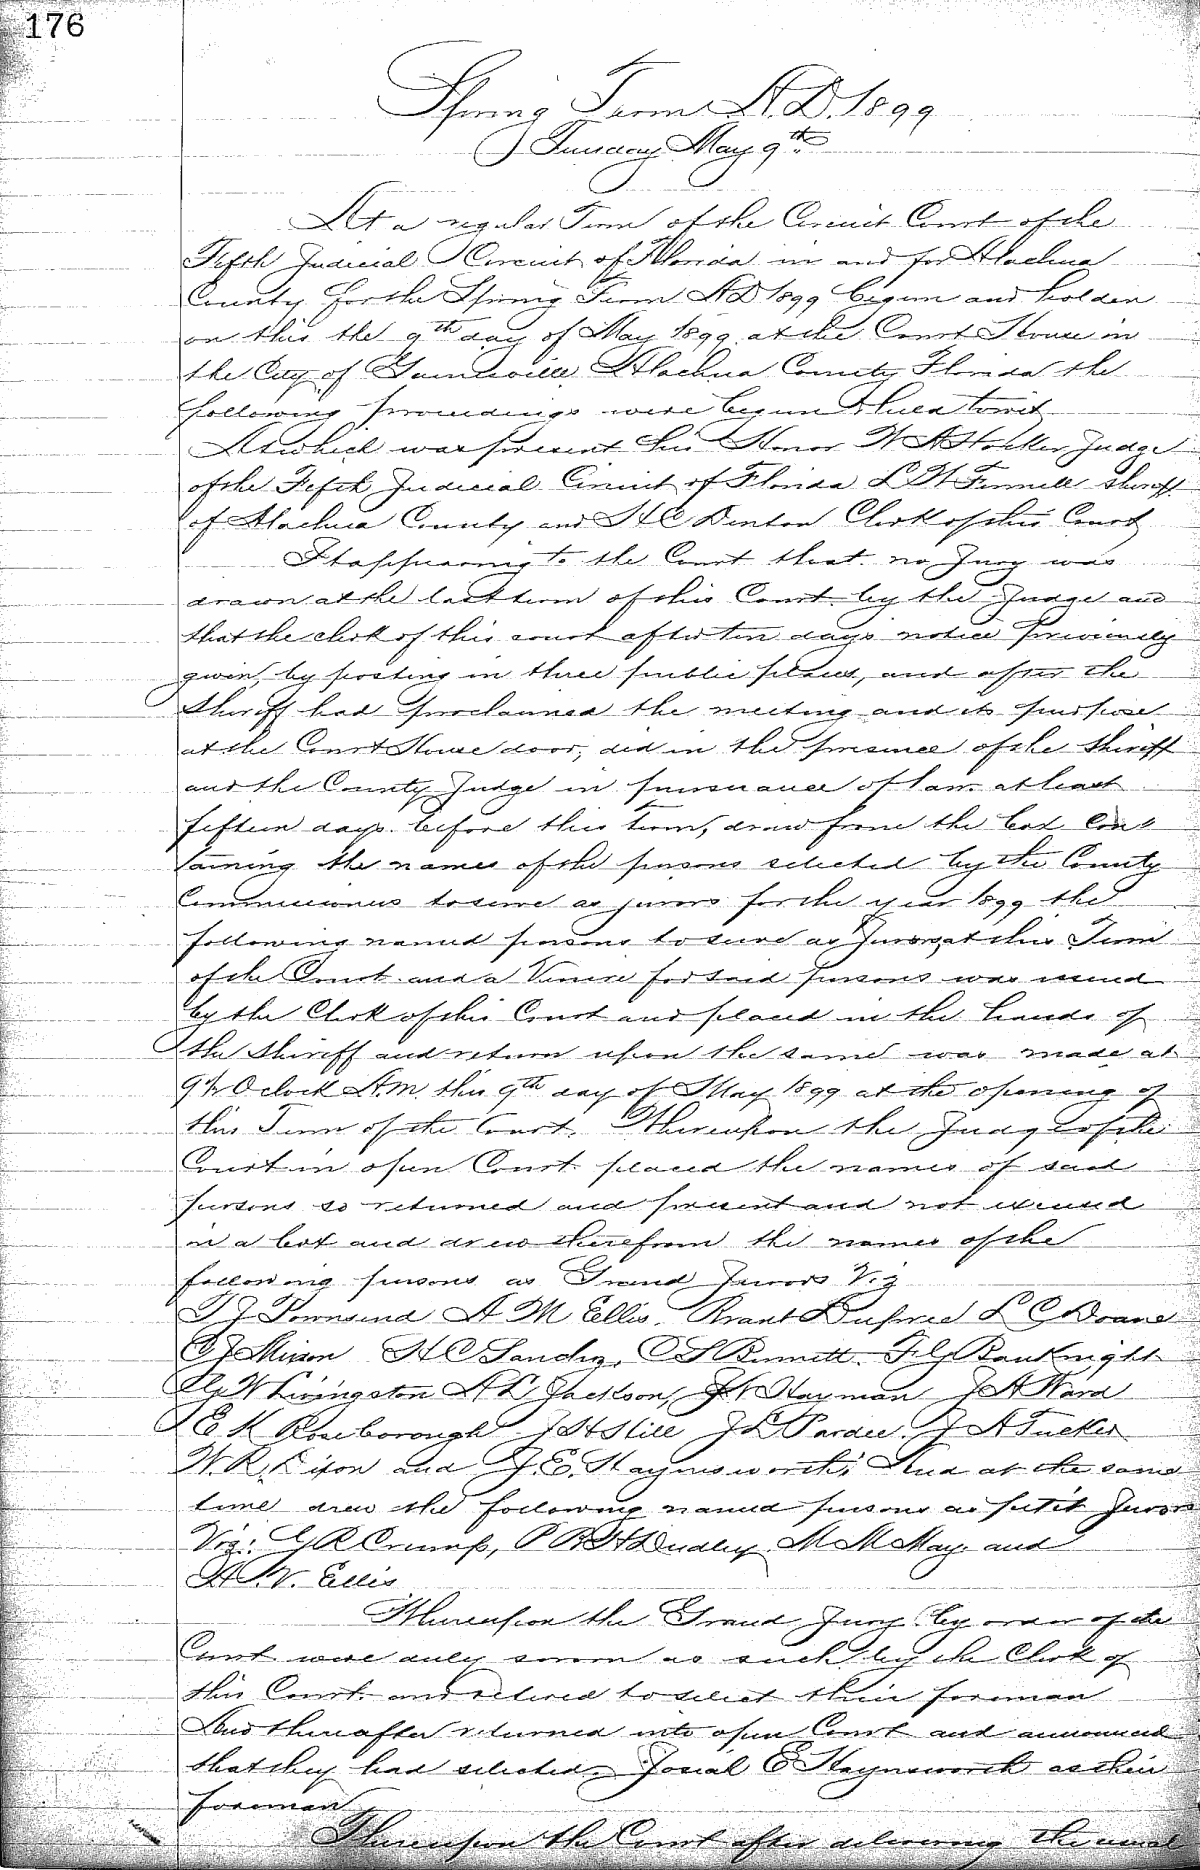 176
Spring Term A.D. 1899
Tuesday May 9th
At a regular Term of the Circuit Court of the
Fifth Judicial Circuit of Florida in and for Alachua
County for the Spring Term AD 1899 begun and holden
on this the 9th day of May 1899 at the Court House in
the City of Gainesville Alachua County Florida the
following proceedings were begun & held towit
At which was present His Honor W A Hocker Judge
of the Fifth Judicial Circuit of Florida L W Fennell Sheriff
of Alachua County and H C Denton Clerk of this Court
It appearing to the Court that no Jury was
drawn at the last term of this Court by the Judge and
that the clerk of this court after ten days notice previously
given, by posting in three public places, and after the
Sheriff had proclaimed the meeting and its purpose
at the Court House door, did in the presence of the Sheriff
and the County Judge in pursuance of law at least
fifteen days before this term, draw from the box con
taining the names of the persons selected by the County
Commissioners to serve as jurors for the year 1899 the
following named persons to serve as Jurors, at this Term
of the Court and a Venire for said persons was issued
by the Clerk of this Court and placed in the hands of
the Sheriff and return upon the same was made at
9½ O clock A.M. this 9th day of May 1899 at the opening of
this Term of the Court. Thereupon the Judge of the
Court in open Court placed the names of said
persons so returned and present and not excused
in a box and drew therefrom the names of the
following persons as Grand Jurors Viz
T J Townsend A M Ellis. Brant Dupree L C Doane
C J Mixon H C Sanchez, C S Bennett. F G Bauknight
G W Livingston A L Jackson, J W Hayman J A Ward
E K Roseborough J H Hill J L Pardee. J A Tucker
W. R. Dixon and J. E. Haynsworth; And at the same
time drew the following named persons as petit Jurors
Viz: G R Crump, P B H Dudley M M May and
H. V. Ellis
Thereupon the Grand Jury by order of the
Court were duly sworn as such by the Clerk of
this Court and retired to select their foreman
And thereafter returned into open Court and announced
that they had selected Josial E Haynsworth as their
foreman
Thereupon the Court after delivering the usual